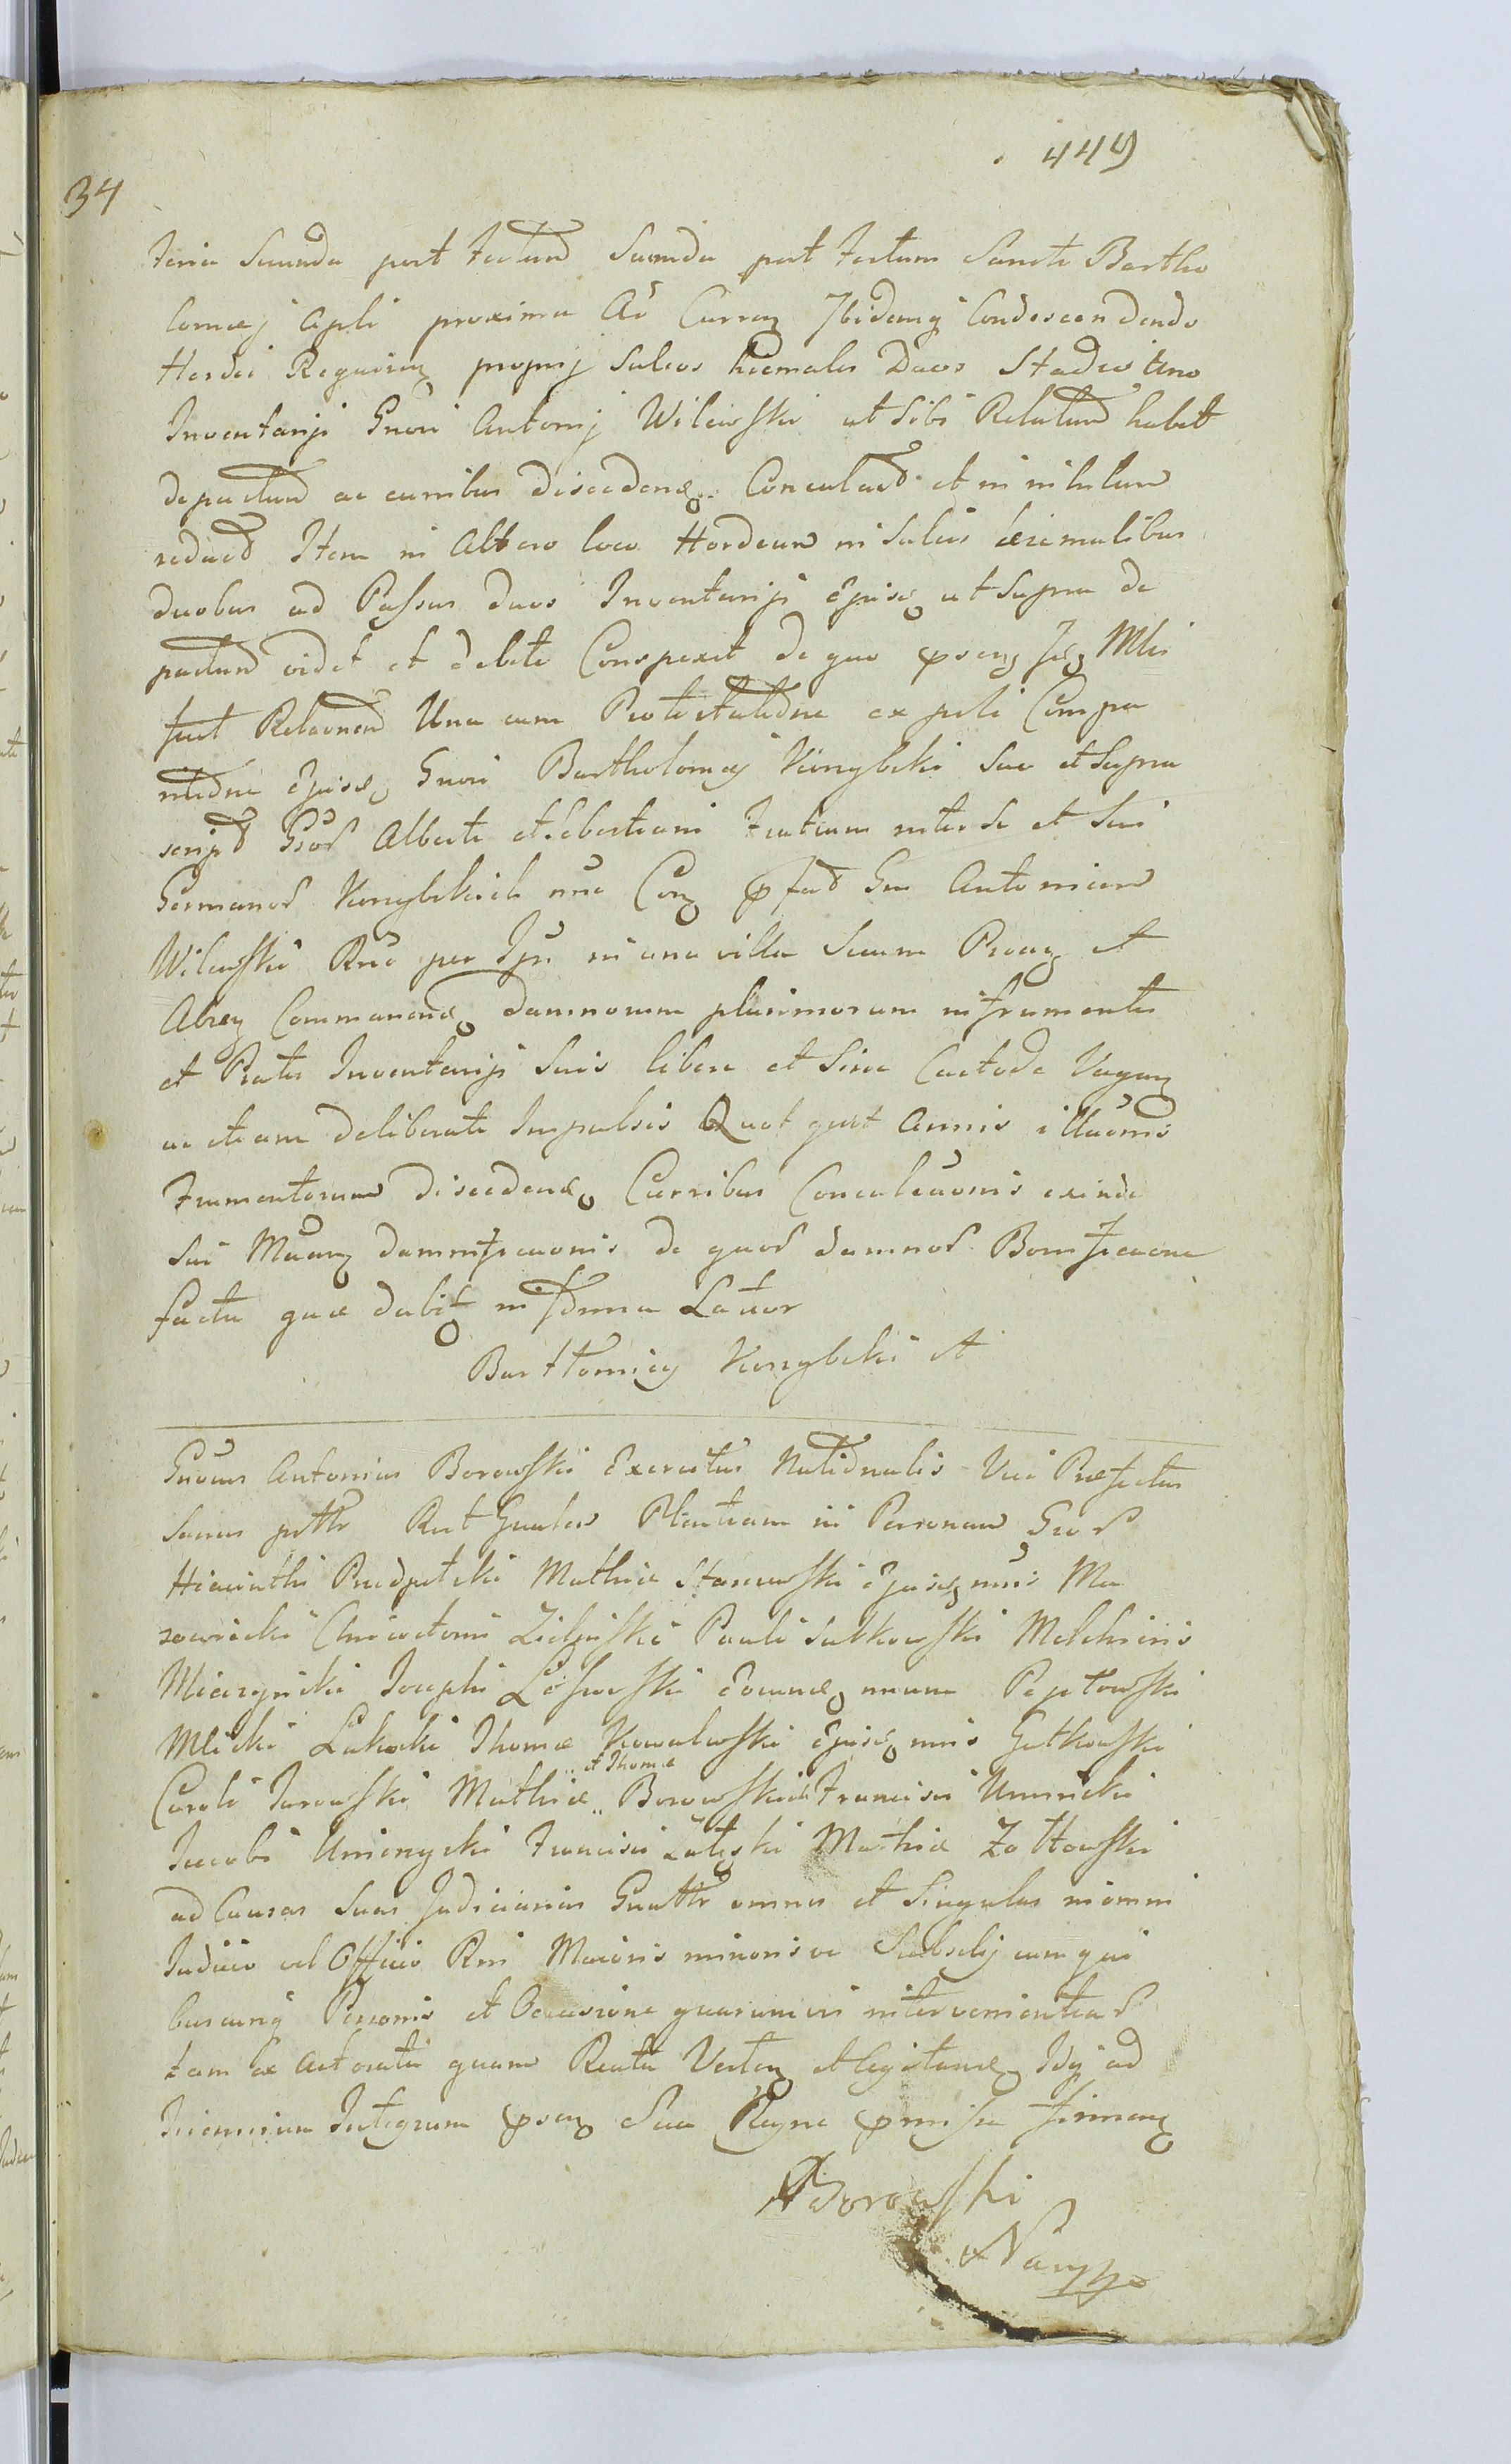 449
34
Feria Secunda post Festum Secunda post Festum Sancti Bartho
lomæj Apli proxima Ao Curren Ibidemq Condescendendo
Hordei Requiren proprij Sulcos hiemales Duos Stadio Uno
Inventarij Gnosi Antonij Wilewski ut Sibi Relatum habet
depactum ac curribus discedene Conculcat et in nihilum
redact Item in Altero loco Hordeum in Sulcis hiemalibus
duobus ad Passus duos Inventarij Ejusd ut Supra de
pactum vidit et debite Conspexit de quo psens Mtri
fuit Relaonem Una cum Protestatione ex psli Compa
ritione Ejusd Gnosi Bartholomæj Konylski Suo et Supra
script Gsor Alberti et Sebastiani Fratrum inter Se et Sui
Germanor Konylskich nne Con pfat Gm Antonium
Wilewski Rno per Ipm in una villa Secum Pecora et
Commanend damnorum plurimorum in frumentis
et Pratis Inventarij Suis libere et Sine Custode Vagan
ac etiam deliberate Impulsis Quot quot Annis illaonis
Frumentorum discedend Curribus Conculcaonis exinde
Sui damnificaonis de quor damnor Bonificaone
facta quæ dabit in fdmma Lator
Barttomiey Konylski
Gnosus Antonius Borowski Exercitus Nationalis Vice Præfectus
Suus psttr Rcit Gnalem Pltentiam in Personam Gsor
Hiacinthi Podpulski Mathiæ Staniewski Ejusd nnis Ma
zowiecki Anisetomi Zielinski Pauli Sulkowski Melchioris
Mierzynski Josephi Lossowski Eorumd nnum Peptowski
Mlicki Lukoski Thomæ Kowalewski Ejusd nnis Gutkowski
Caroli Jurowski Mathiæ et Thomæ Borowskich Francisci Uminski
Jacobi Umienycki Francisci Zaleski Mathiæ Zoltowski
ad Causas Suas Judiciarias Gnattr omnes et Singulas in omni
Judicio vel Officio Rni Maioris minorisve Subselij cum qui
buscunq Personis et Occasione quarumvis intervenientiar
tam ex Actoratu quam Reatu Verten et Agitand Idq ad
Triennium Integrum psen Sua Rcogne pmissa firman
ABorowski